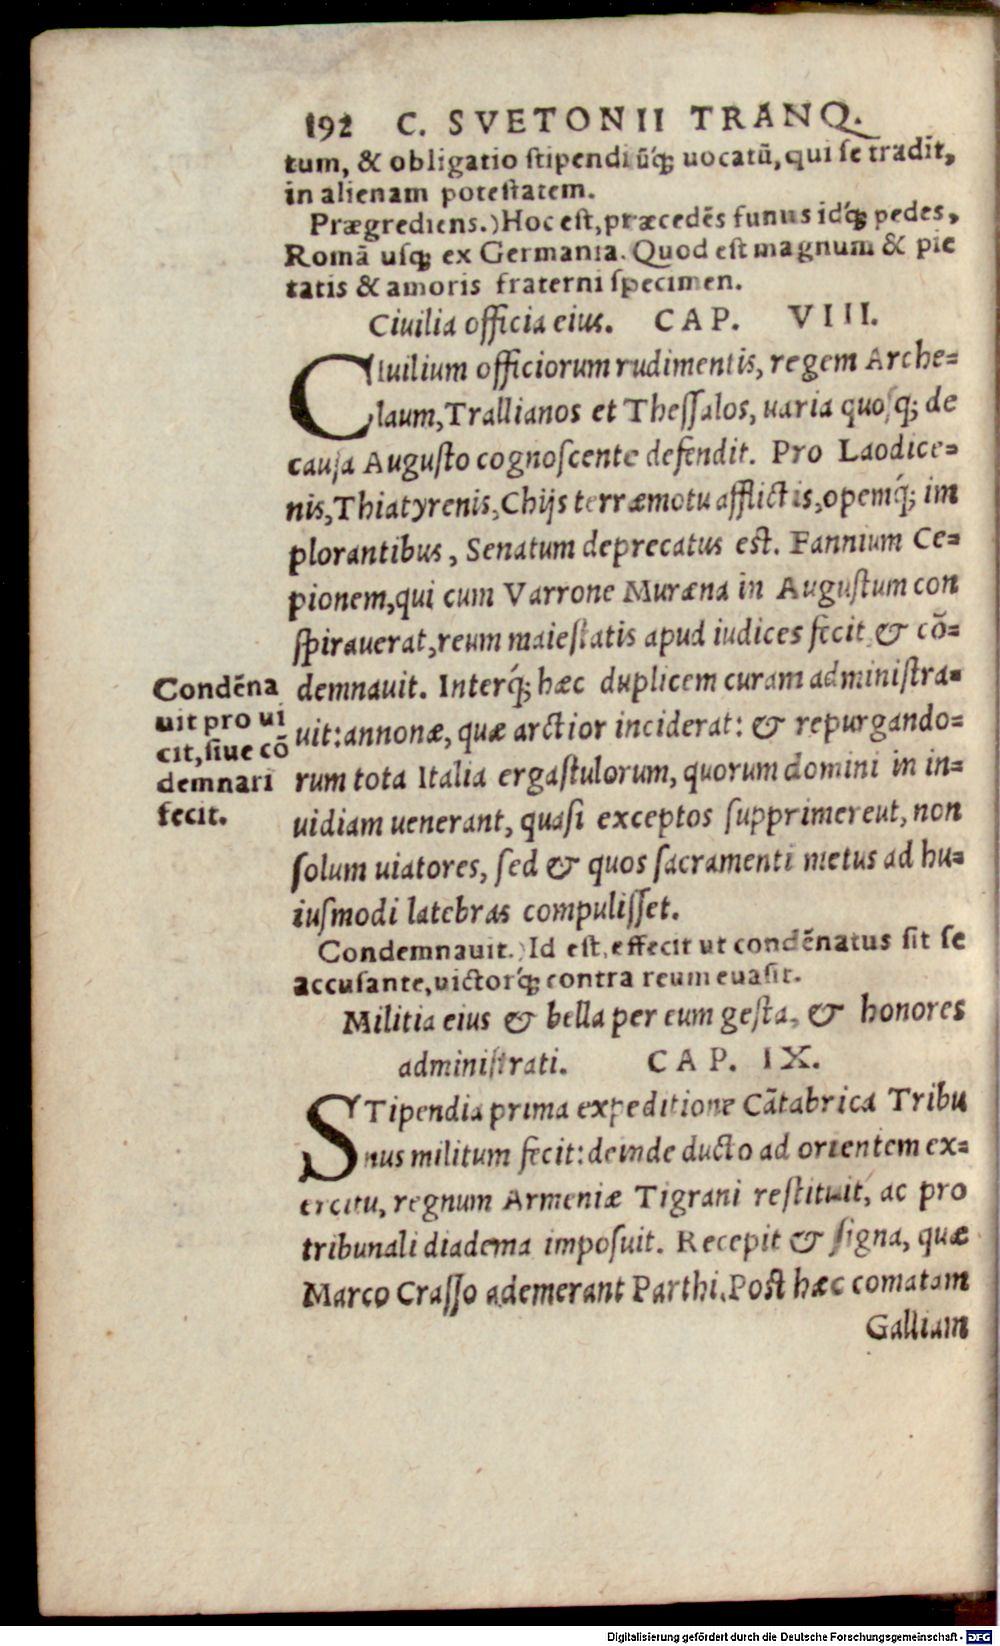 192 C. SVETONII TRANQ.
tum, & obligatio stipendiũq́; uocatũ, qui se tradit,
in alienam potestatem.
Prægrediens.) Hoc est, præcedẽs funus idq́; pedes,
Romã usq; ex Germania. Quod est magnum & pie
tatis & amoris fraterni specimen.
Ciuilia officia eius. CAP. VIII.
CIuilium officiorum rudimentis, regem Arche=
laum, Trallianos et Thessalos, uaria quosq; de
causa Augusto cognoscente defendit. Pro Laodice=
nis, Thiatyrenis, Chijs terræmotu afflictis, opemq́; im
plorantibus, Senatum deprecatus est. Fannium Ce=
pionem, qui cum Varrone Muræna in Augustum con
spirauerat, reum maiestatis apud iudices fecit & cõ=
demnauit. Interq́; hæc duplicem curam administra=
uit: annonæ, quæ arctior inciderat: & repurgando=
rum tota Italia ergastulorum, quorum domini in in=
uidiam uenerant, quasi exceptos supprimereut, non
solum uiatores, sed & quos sacramenti metus ad hu=
iusmodi latebras compulisset.
Condẽna
uit pro ui
cit, siue cõ
demnari
fecit.
Condemnauit.) Id est, effecit ut condẽnatus sit se
accusante, uictorq́; contra reum euasit.
Militia eius & bella per eum gesta, & honores
administrati. CAP. IX.
STipendia prima expeditione Cãtabrica Tribu
nus militum fecit: deinde ducto ad orientem ex=
ercitu, regnum Armeniæ Tigrani restituit, ac pro
tribunali diadema imposuit. Recepit & signa, quæ
Marco Crasso ademerant Parthi. Post hæc comatam
Galliam
Digitalisierung gefördert durch die Deutsche Forschungsgemeinschaft - DFG